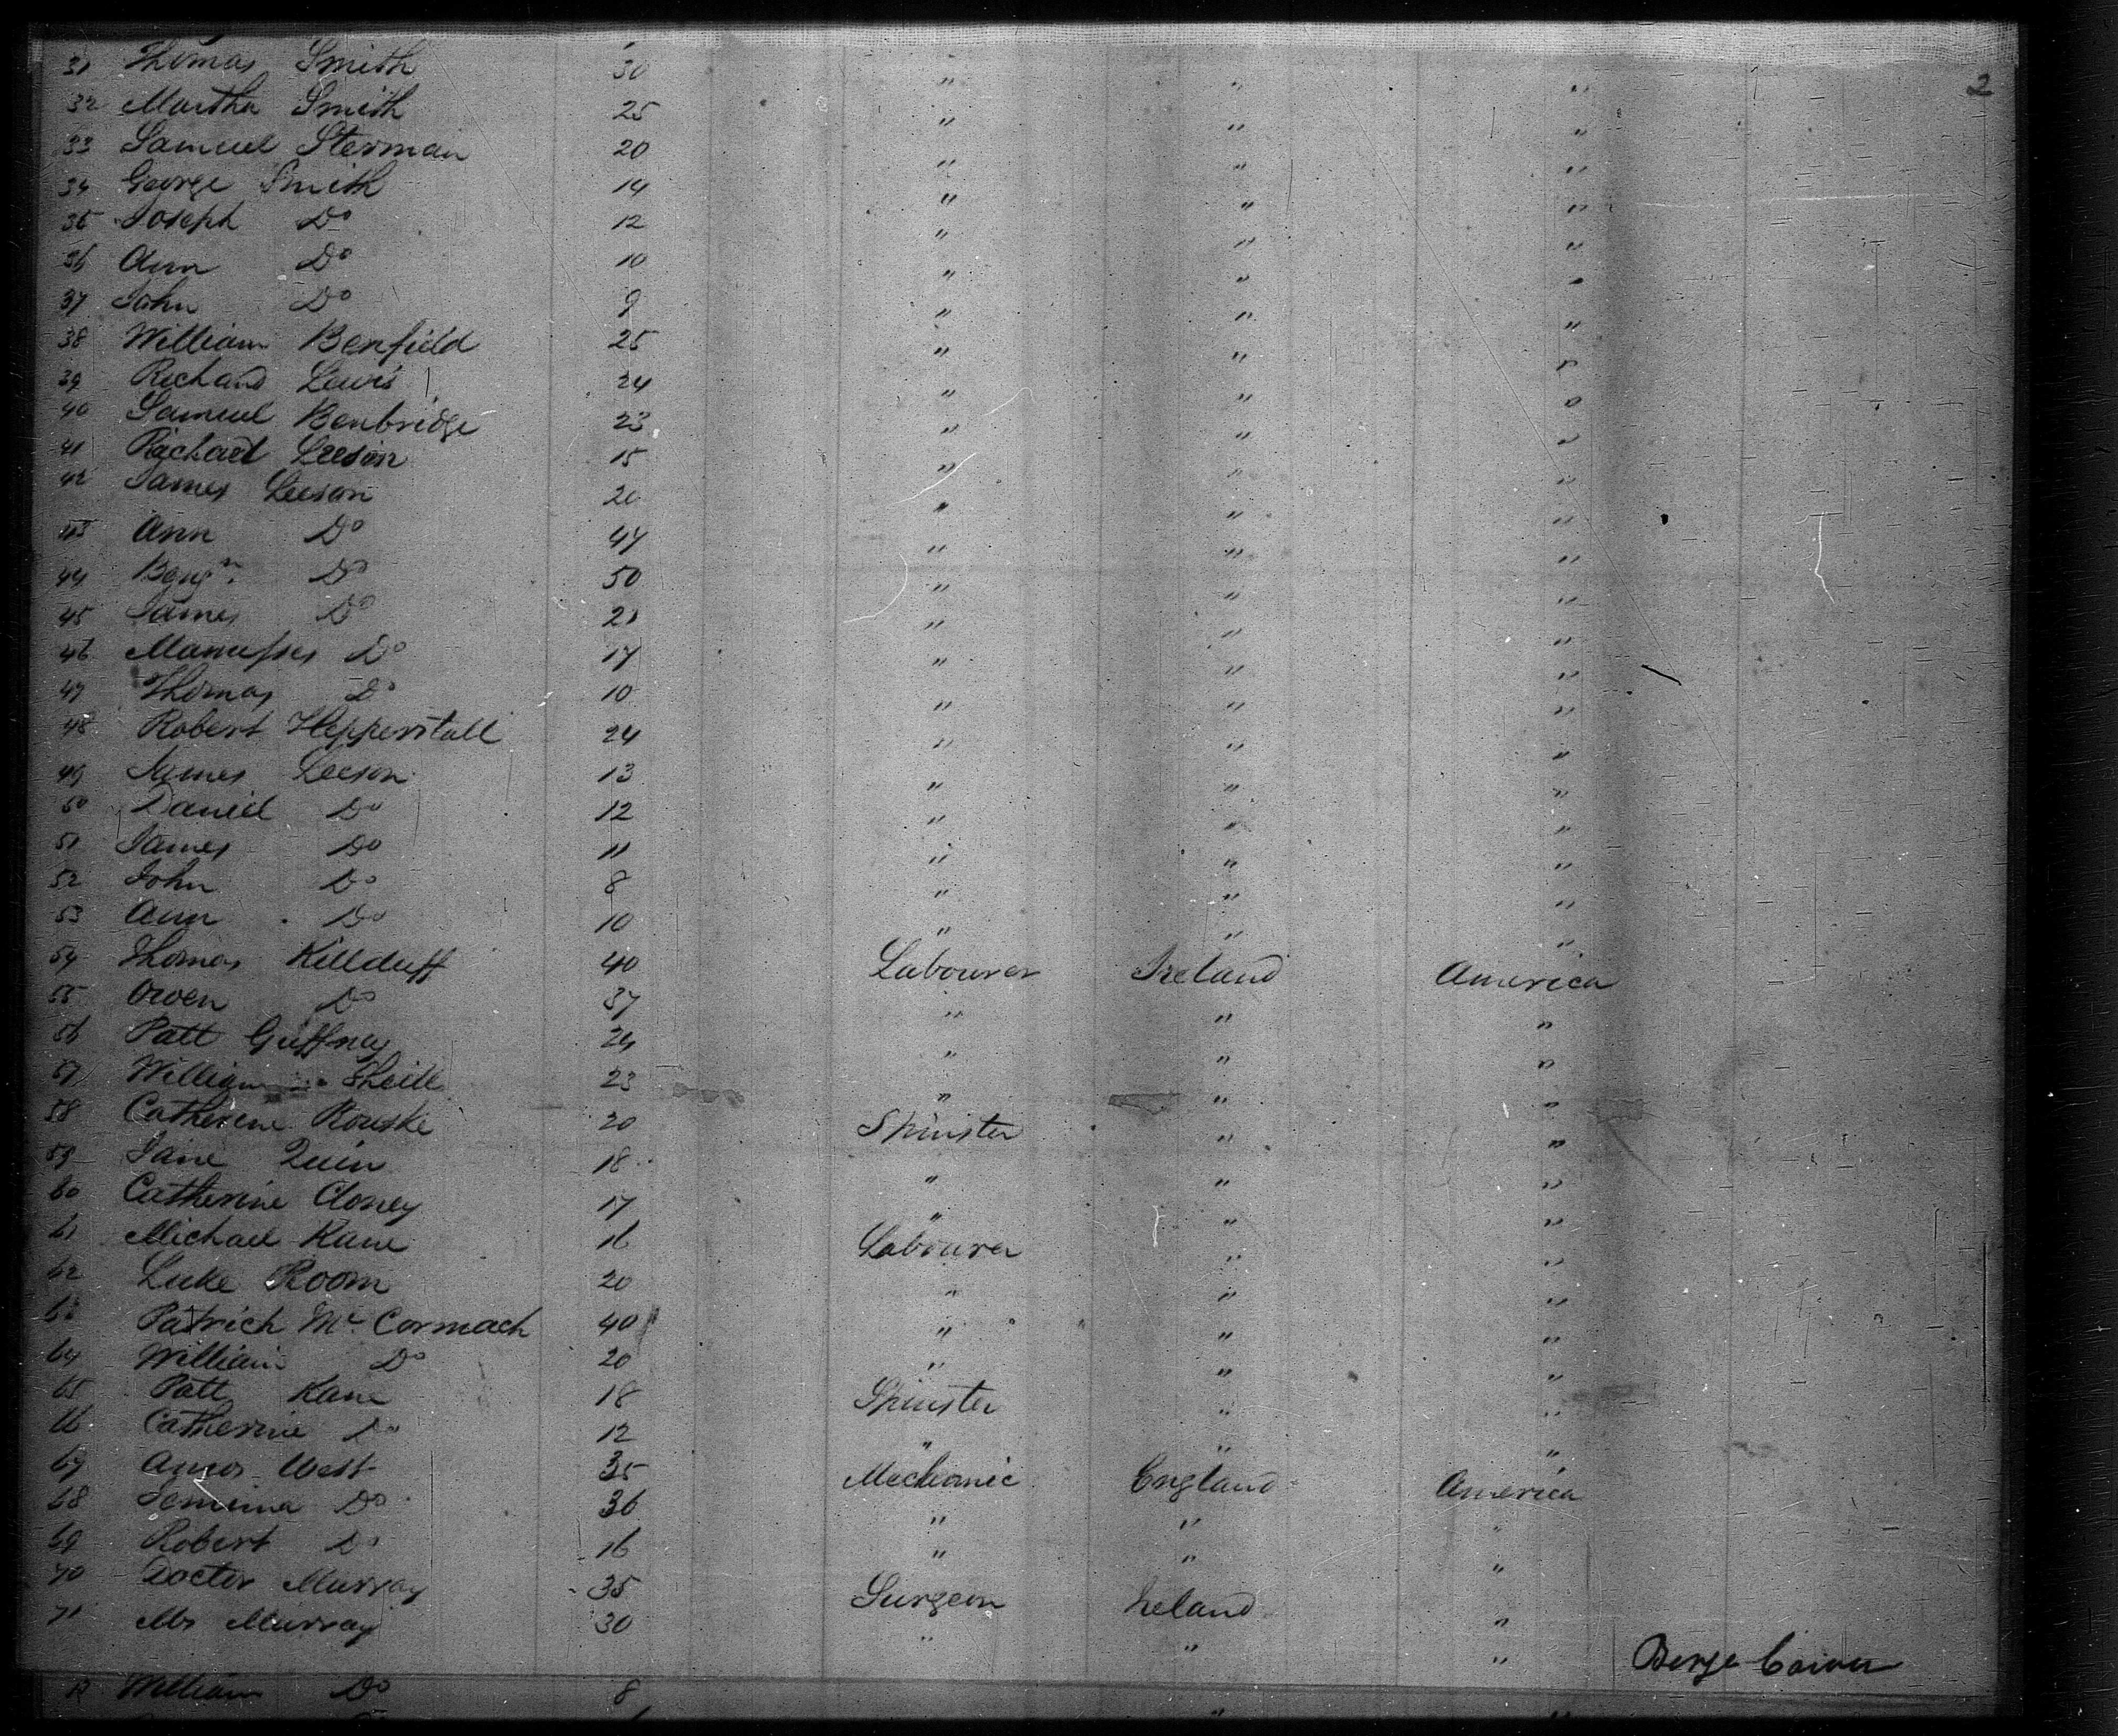 2
31 Thomas Smith 30 " " "
32 Martha Smith 25 " " "
33 Samuel Sterman 20 " " "
34 George Smith 14 " " "
35 Joseph Do 12 " " "
36 Ann Do 10 " " "
37 John Do 9 " " "
38 William Benfield 25 " " "
39 Richard Lewis 24 " " "
40 Samuel Benbridge 23 " " "
41 Richard Leeson 15 " " "
42 James Leeson 20 " " "
43 Ann Do 47 " " "
44 Benjn. Do 50 " " "
45 James Do 21 " " "
46 Manasses Do 17 " " "
47 Thomas Do 10 " " "
48 Robert Hepperstall 24 " " "
49 James Leeson 13 " " "
50 Daniel Do 12 " " "
51 James Do 11 " " "
52 John Do 8 " " "
53 Ann Do 10 " " "
54 Thomas Killduff 40 Labourer Ireland America
55 Owen Do 37 " " "
56 Patt Guffney 24 " " "
57 William Sheill 23 " " "
58 Catherine Rourke 20 Spinster " "
59 Jane Quin 18 " " "
60 Catherine Cloney 17 " " "
61 Michael Kane 16 Labourer " "
62 Luke Room 20 " " "
63 Patrick Mc Cormack 40 " " "
64 William Do 20 " " "
65 Patt Kane 18 Spinster " "
66 Catherine Do 12 " " "
67 Amos West 35 Mechanic England America
68 Jemima Do 36 " " "
69 Robert Do 16 " " "
70 Doctor Murray 35 Surgeon Ireland "
71 Mrs Murray 30 " " "
William Do 8